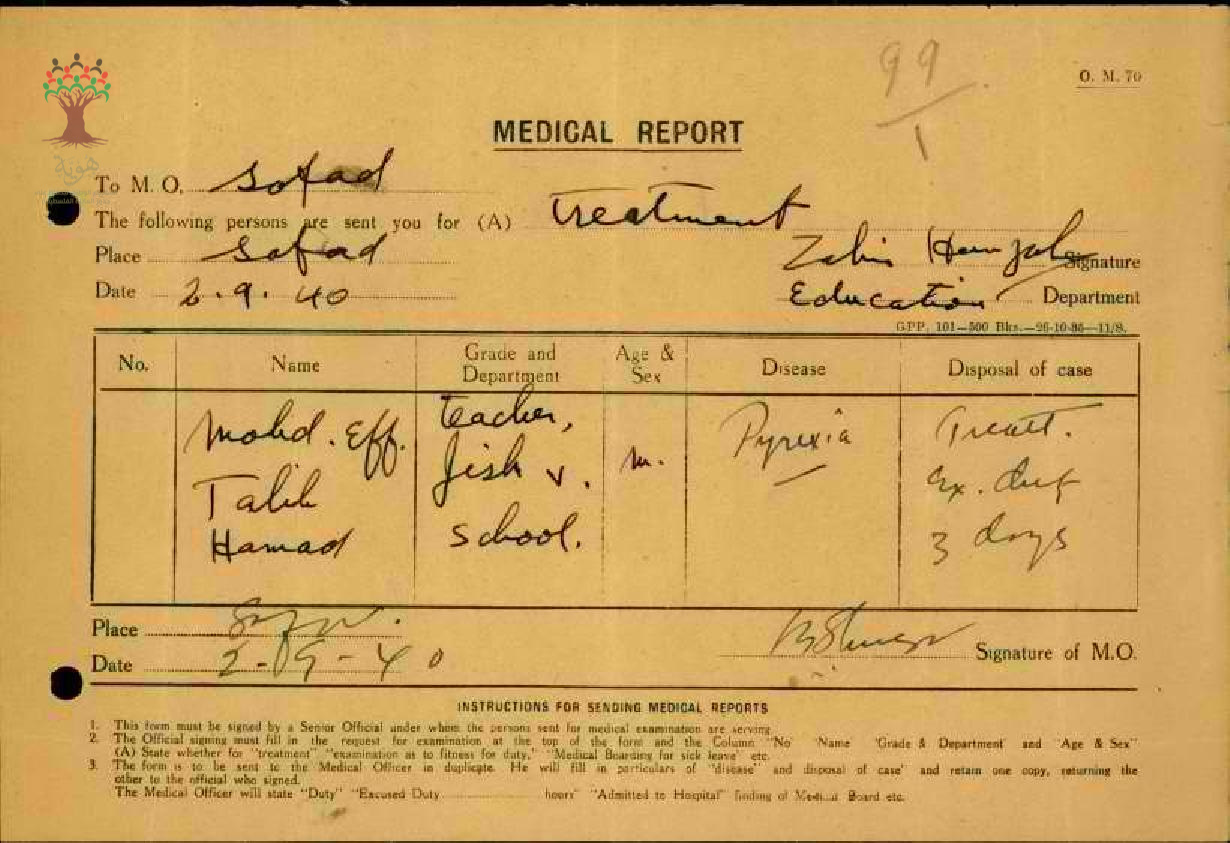 99
1
O. M. 70
هوية
MEDICAL REPORT
To M. O. Safad
The following persons are sent you for (A) treatment
Place Safad
Signature
Date 2.9.40
Education Department
G.P.P. 101—500 Bks.—26-10-36—11/8.
No. Name Grade and Department Age & Sex Disease Disposal of case
Mohd. Eff. teacher, Pyrexia Treatt.
Jish v. m. Ex. duty
Talib
Hamad school. 3 days
Place
Date 2-9-40 Signature of M.O.
INSTRUCTIONS FOR SENDING MEDICAL REPORTS
1. This form must be signed by a Senior Official under whom the persons sent for medical examination are serving
2. The Official signing must fill in the request for examination at the top of the form and the Column "No Name 'Grade & Department' and 'Age & Sex"
(A) State whether for "treatment" "examination as to fitness for duty," "Medical Boarding for sick leave" etc.
3. The form is to be sent to the Medical Officer in duplicate. He will fill in particulars of "disease" and disposal of case' and retain one copy, returning the
other to the official who signed.
The Medical Officer will state "Duty" "Excused Duty hours" "Admitted to Hospital" finding of Medical Board etc.